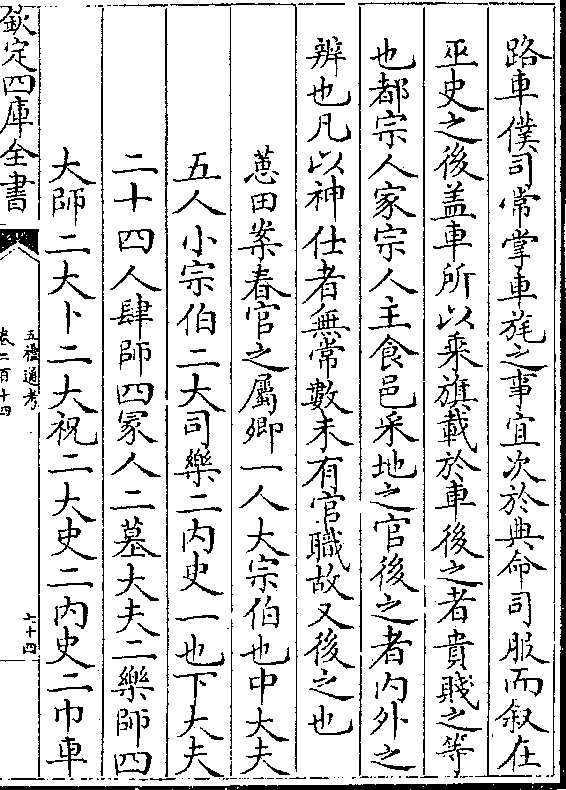 路車僕司常掌車旄之事宜次於典命司服而叙在
巫史之後盖車所以乗旗載於車後之者貴賤之等
也都宗人家宗人主食邑采地之官後之者内外之
辨也凡以神仕者無常數未有官職故又後之也
蕙田案春官之屬卿一人大宗伯也中大夫
五人小宗伯二大司樂二内史一也下大夫
二十四人肆師四冢人二墓大夫二樂師四
大師二大卜二大祝二大史二内史二巾車
欽定四庫全書
五禮通考
卷二百十四
六十四